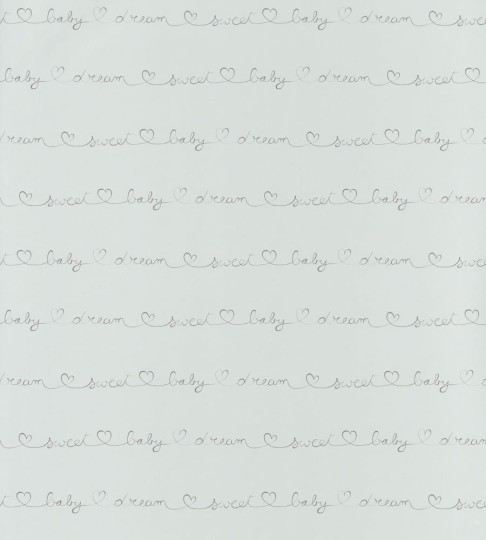 baby dream sweet baby dream sweet
baby dream sweet baby dream sweet
dream sweet baby dream sweet baby
sweet baby dream sweet baby dream
baby dream sweet baby dream sweet
baby dream sweet baby dream sweet
dream sweet baby dream sweet baby
sweet baby dream sweet baby dream
baby dream sweet baby dream